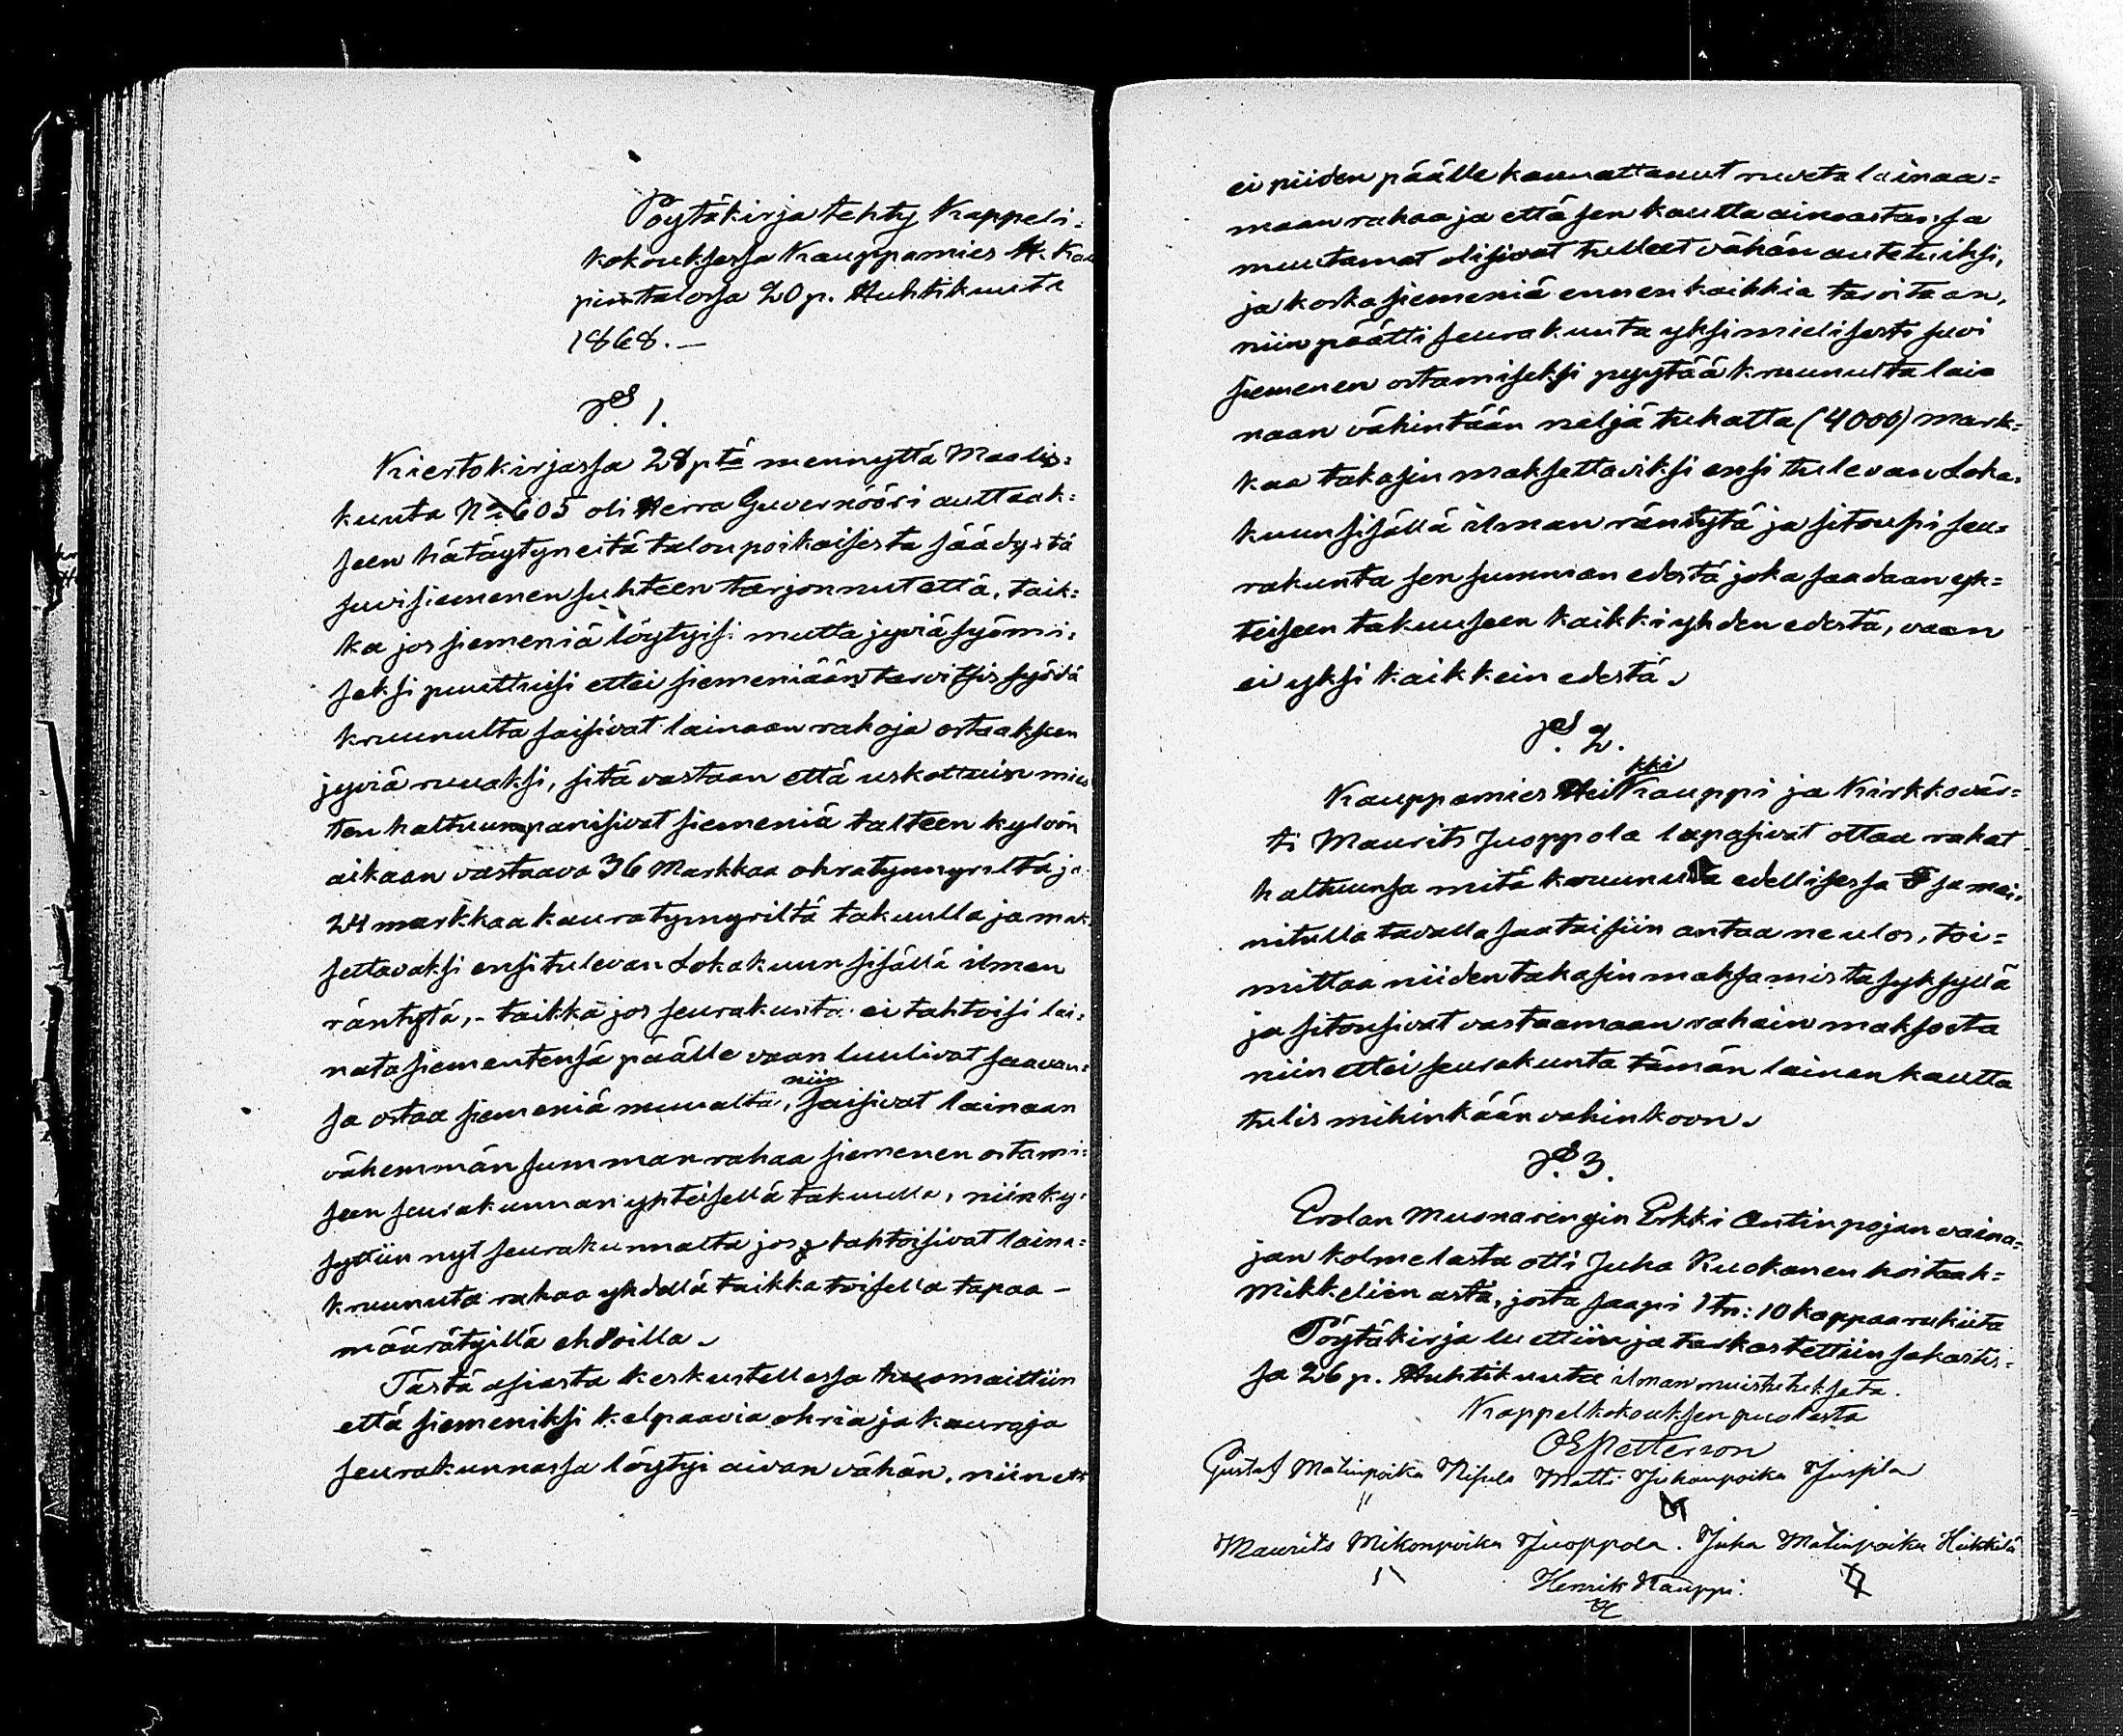 Pöytäkirja tehty Kappeli-
kokouksessa Kauppamies H. Kau
pin talossa 20 p. Huhtikuuta
1868. —
§. 1.
Kiertokirjassa 28 p:tä mennyttä Maalis-
kuuta No 605 oli Herra Guvernööri auttaak-
seen hätäytyneitä talonpoikaisesta säädystä
suvisiemenen suhteen tarjonnut että, taik-
ka jos siemeniä löytyisi mutta jyviä syömi-
seksi puuttuisi ettei siemeniään tarvitsis syödä
kruunulta saisivat lainaan rahoja ostaakseen
jyviä ruuaksi, sitä vastaan että uskottuin mies
ten haltuun panisivat siemeniä talteen kylvön
aikaan vastaava 36 Markkaa ohratynnyriltä ja
24 markkaa kauratynnyriltä takuulla ja mak-
settavaksi ensitulevan Lokakuun sisällä ilman
räntytä, - taikka jos seurakunta ei tahtoisi lai-
nata siementensä päälle vaan luulivat saavan-
sa ostaa siemeniä muualta, niin saisivat lainaan
vähemmän summan rahaa siemenen ostami-
seen seurakunnan yhteisellä takuulla, niin ky-
syttiin nyt seurakunnalta jos tahtoisivat laina-
kruunuta rahaa yhdellä taikka toisella tapaa -
määrätyillä ehdoilla.
Tästä asiasta keskustellessa huomaittiin
että siemeniksi kelpaavia ohria ja kauroja
seurakunnassa löytyi aivan vähän, niin ett
ei niiden päälle kannattanut ruveta lainaa-
maan rahaa ja että sen kautta ainoastansa
muutamat olisivat tulleet vähän autetuiksi,
ja koska siemeniä ennen kaikkia tarvitaan,
niin päätti seurakunta yksimielisesti suvi
siemenen ostamiseksi pyytää kruunulta lai-
naan vähintään neljä tuhatta (4000) mark-
kaa takasin maksettaviksi ensi tulevan Loka-
kuun sisällä ilman räntytä ja sitoupi seu-
rakunta sen summan edestä joka saadaan yh-
teiseen takuuseen kaikki yhden edestä, vaan
ei yksi kaikkein edestä.
§. 2.
Kauppamies Heikki Kauppi ja Kirkkovär-
ti Maurits Juoppola lupasivat ottaa rahat
haltuunsa mitä kruunulta edellisessä §sa mai-
nitulla tavalla saataisiin antaa ne ulos, toi-
mittaa niiden takasin maksamista syksyllä
ja sitousivat vastaamaan rahain maksosta
niin ettei seurakunta tämän lainan kautta
tulis mihinkään vahinkoon.
§. 3.
Erolan Muonarengin Erkki Antinpojan vaina-
jan kolme lasta otti Juha Ruokanen hoitaak-
Mikkeliin asta, josta saapi 1 tn: 10 kappaa rukiita
Pöytäkirja luettiin ja tarkastettiin sakastis-
sa 26 p. Huhtikuuta ilman muistutuksetta.
Kappelkokouksen puolesta
OE Petterson
Gustaf Matinpoika Nisula Matti Juhanpoika Juspila
Maurits Mikonpoika Juoppola. Juha Matinpoika Heikkilä
Henrik Kauppi.